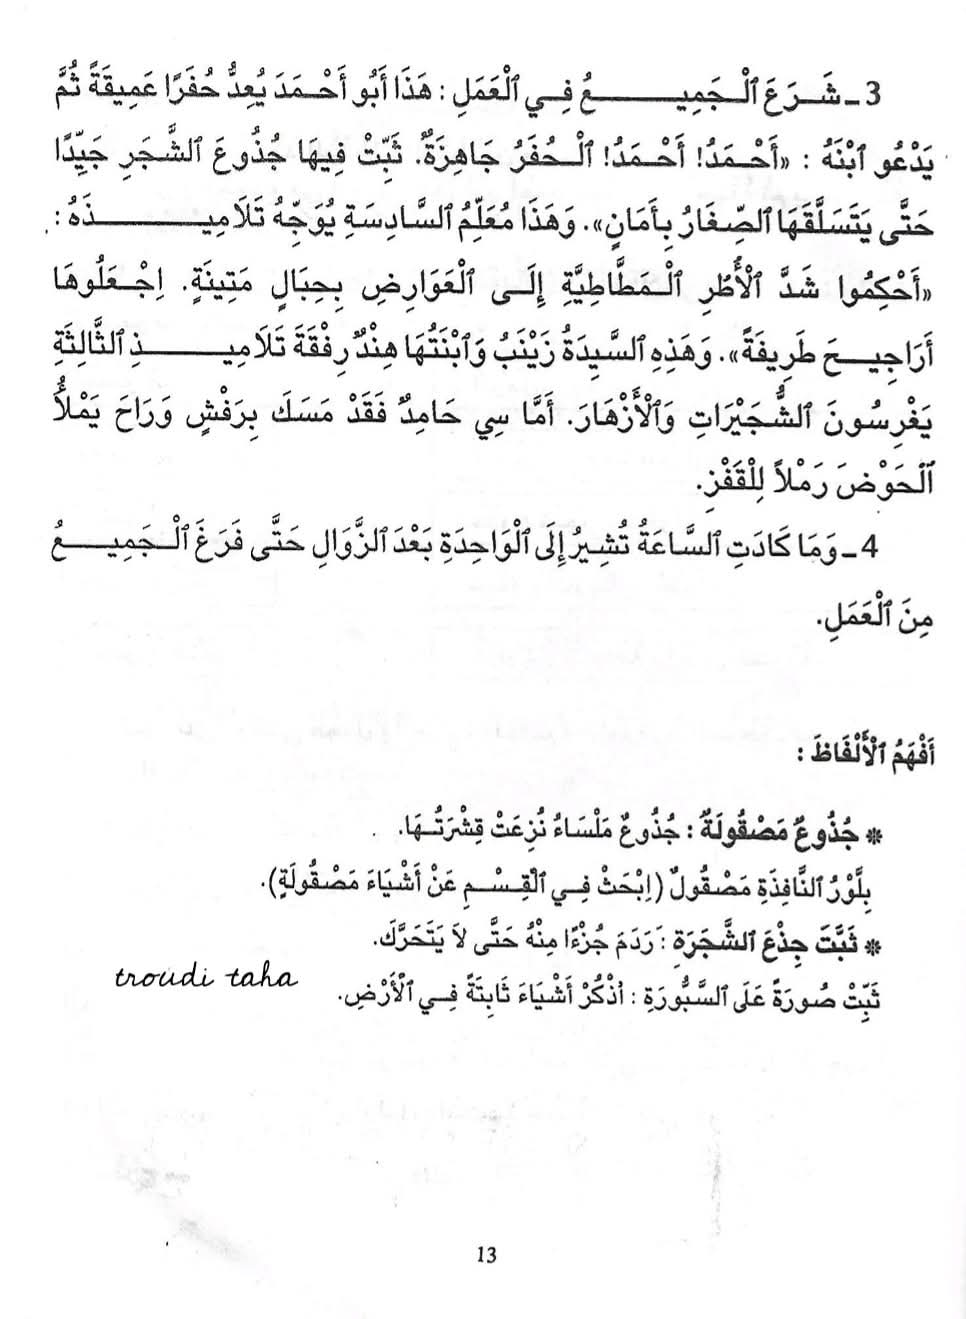 3 ـ شَرَعَ ٱلْجَمِيعُ فِي ٱلْعَمَلِ : هَذَا أَبُو أَحْمَدَ يُعِدُّ حُفَرًا عَمِيقَةً ثُمَّ
يَدْعُو ٱبْنَهُ : «أَحْمَدُ! أَحْمَدُ! ٱلْحُفَرُ جَاهِزَةٌ. ثَبِّتْ فِيهَا جُذُوعَ ٱلشَّجَرِ جَيِّدًا
حَتَّى يَتَسَلَّقَهَا ٱلصِّغَارُ بِأَمَانٍ». وَهَذَا مُعَلِّمُ ٱلسَّادِسَةِ يُوَجِّهُ تَلَامِيذَهُ :
«أَحْكِمُوا شَدَّ ٱلْأُطُرِ ٱلْمَطَّاطِيَّةِ إِلَى ٱلْعَوَارِضِ بِحِبَالٍ مَتِينَةٍ. اِجْعَلُوهَا
أَرَاجِيحَ طَرِيفَةً». وَهَذِهِ ٱلسَّيِّدَةُ زَيْنَبُ وَٱبْنَتُهَا هِنْدُ رِفْقَةَ تَلَامِيذِ ٱلثَّالِثَةِ
يَغْرِسُونَ ٱلشُّجَيْرَاتِ وَٱلْأَزْهَارَ. أَمَّا سِي حَامِدٌ فَقَدْ مَسَكَ بِرَفْشٍ وَرَاحَ يَمْلَأُ
ٱلْحَوْضَ رَمْلاً لِلْقَفْزِ.
4 ـ وَمَا كَادَتِ ٱلسَّاعَةُ تُشِيرُ إِلَى ٱلْوَاحِدَةِ بَعْدَ ٱلزَّوَالِ حَتَّى فَرَغَ ٱلْجَمِيعُ
مِنَ ٱلْعَمَلِ.
أَفْهَمُ ٱلْأَلْفَاظَ :
* جُذُوعٌ مَصْقُولَةٌ : جُذُوعٌ مَلْسَاءُ نُزِعَتْ قِشْرَتُهَا.
بِلَّوْرُ ٱلنَّافِذَةِ مَصْقُولٌ (اِبْحَثْ فِي ٱلْقِسْمِ عَنْ أَشْيَاءَ مَصْقُولَةٍ).
* ثَبَّتَ جِذْعَ ٱلشَّجَرَةِ : رَدَمَ جُزْءًا مِنْهُ حَتَّى لاَ يَتَحَرَّكَ.
ثَبِّتْ صُورَةً عَلَى ٱلسَّبُّورَةِ : اُذْكُرْ أَشْيَاءَ ثَابِتَةً فِي ٱلْأَرْضِ.
troudi taha
13